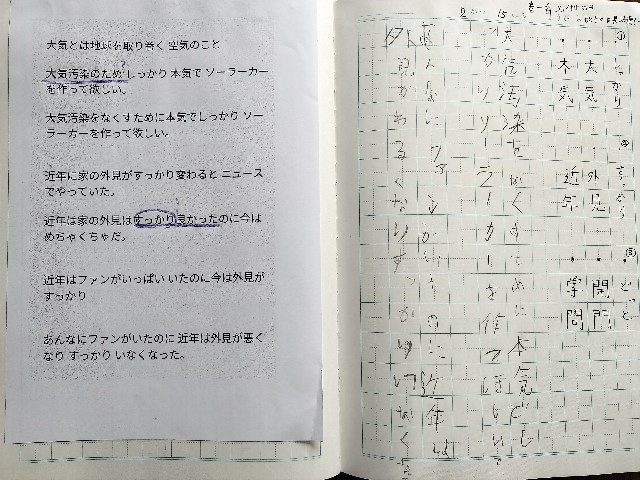 大気とは地球を取り巻く 空気のこと
大気汚染のため しっかり 本気で ソーラーカー
を作って欲しい。
大気汚染をなくすために本気でしっかり ソー
ラーカーを作って欲しい。
近年に家の外見がすっかり変わると ニュース
でやっていた。
近年は家の外見はすっかり良かったのに今は
めちゃくちゃだ。
近年はファンがいっぱい いたのに今は外見が
すっかり
あんなにファンがいたのに 近年は外見が悪く
なり すっかり いなくなった。
① しっかり
大気
本気
② すっかり
外見
近年
③
開門
学問
大気汚染をなくすために本気でし
っかりソーラーカーを作って欲しい
あんなにファンがいたのに近年は
外見がわるくなりすっかりいなく